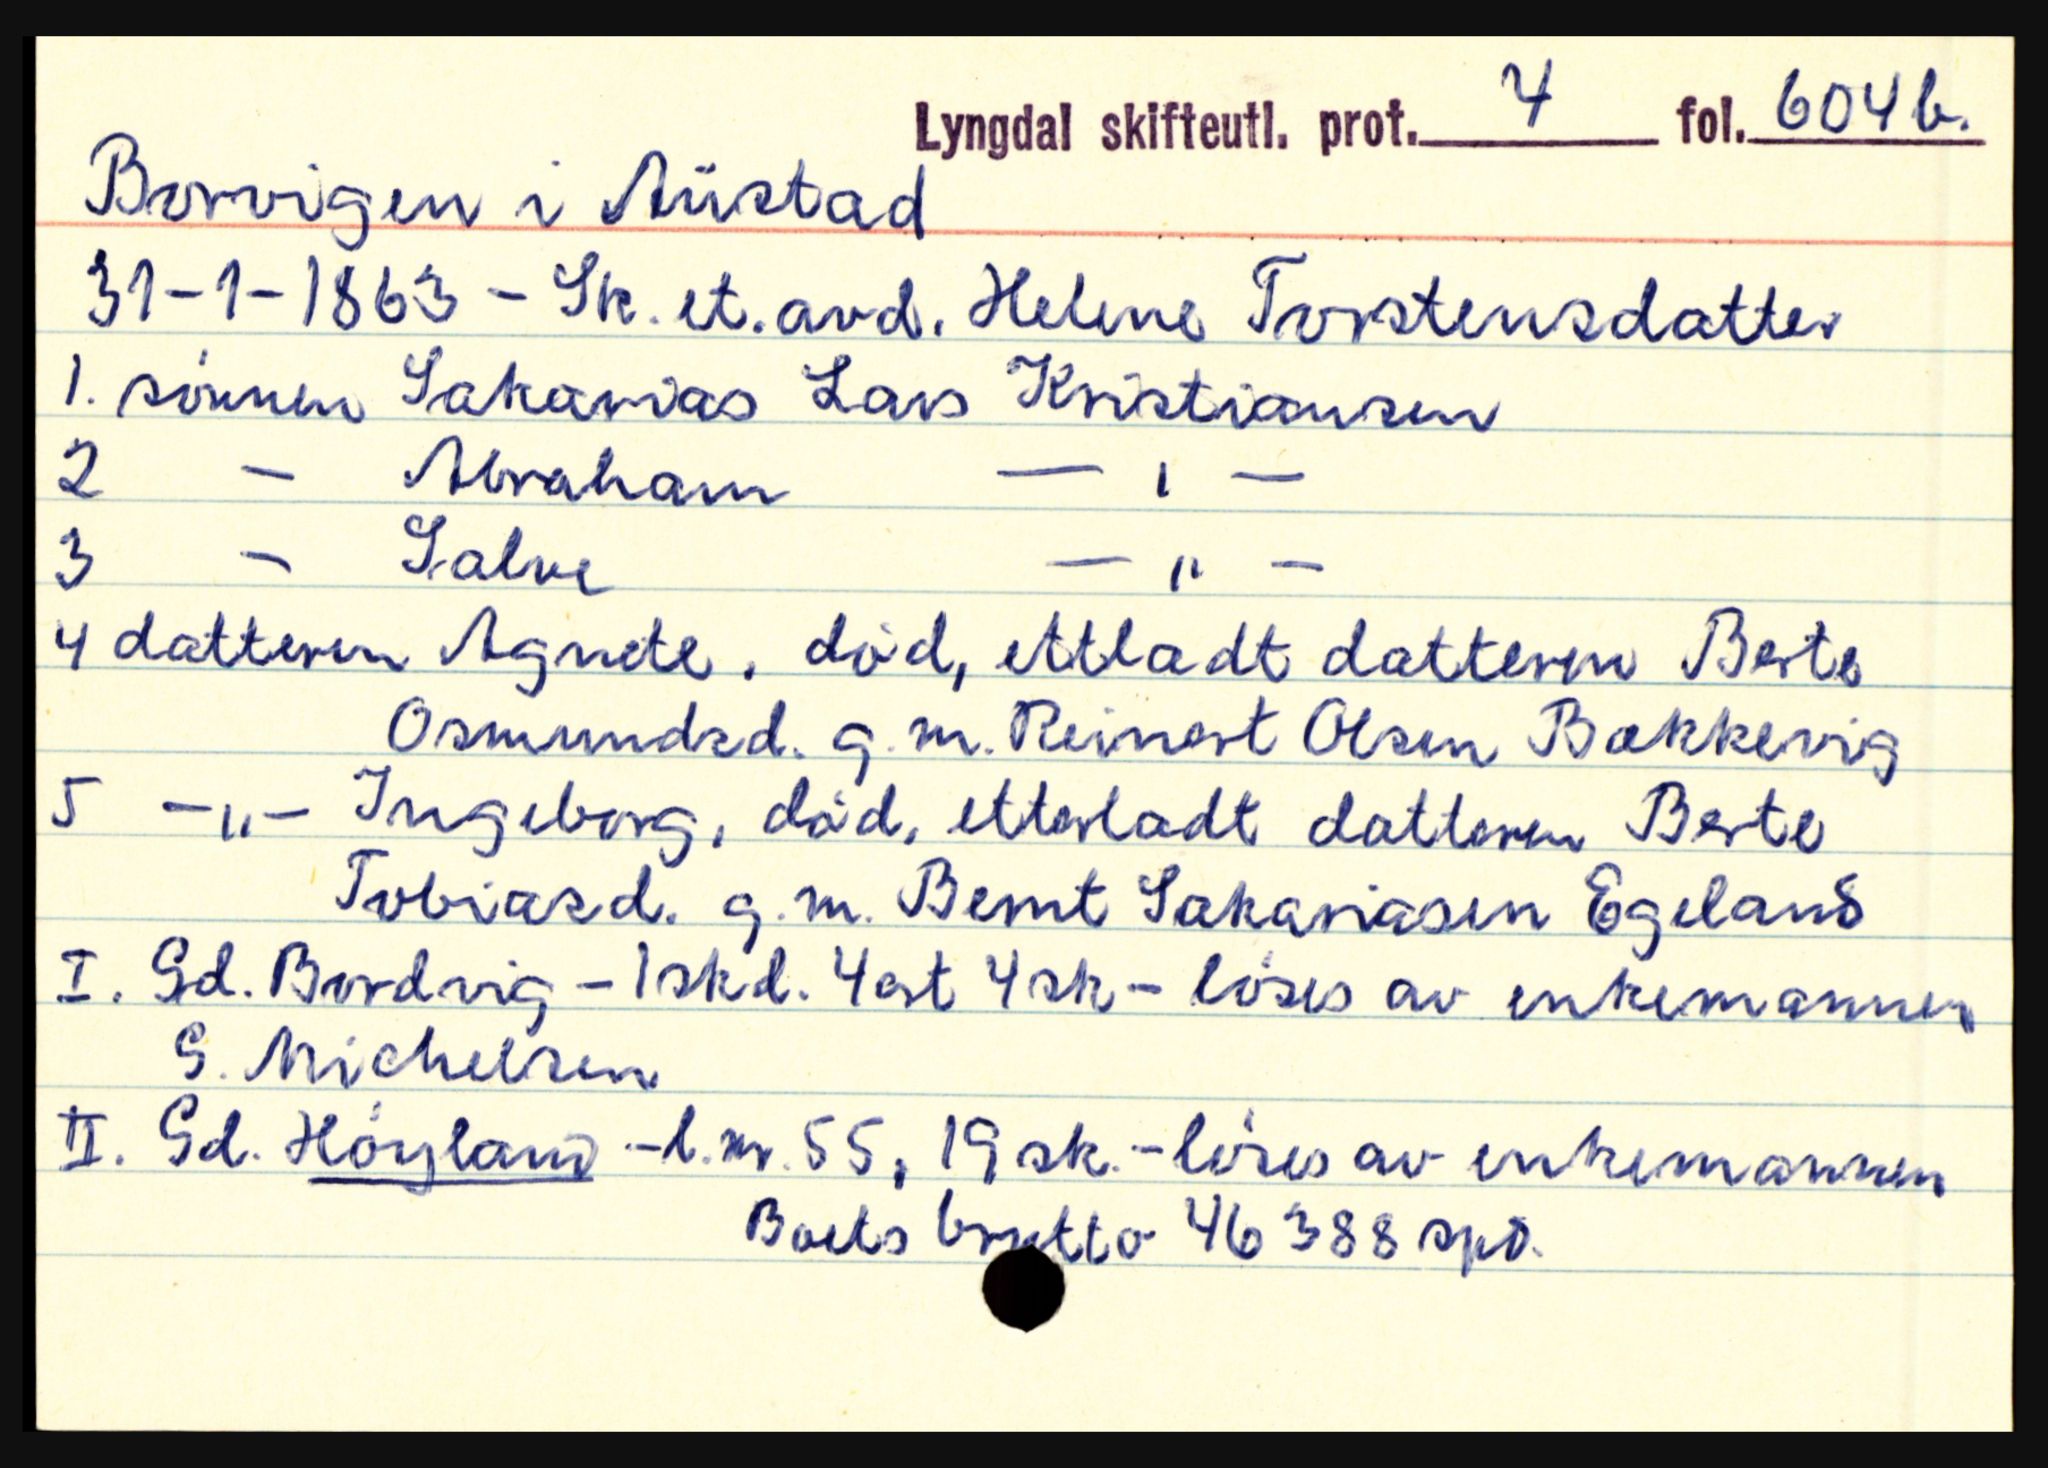 Lyngdal skifteutl. prot. 4 fol. 604b.
Borvigen i Aüstad
31-1-1863 - Sk. et. avd. Helene Torstensdatter
1. sónnen Sakarias Lars Kristiansen
2 - Abraham — ı —
3 - Salve — " —
4 datteren Agnete. død, ettladt datteren Berte
Osmundsd. g. m. Reinert Olsen Bækkevig
5 -"- Ingeborg, død, etterladt datteren Berte
Tobiasd. g. m. Bernt Sakariasen Egeland
I. Gd. Bordvig - 1 skd. 4 ort 4 sk - lóses av enkemannen
G. Michelsen
II. Gd. Hóyland - l. nr. 55, 19 sk. - lóses av enkemannen
Boets brutto 46 388 spd.